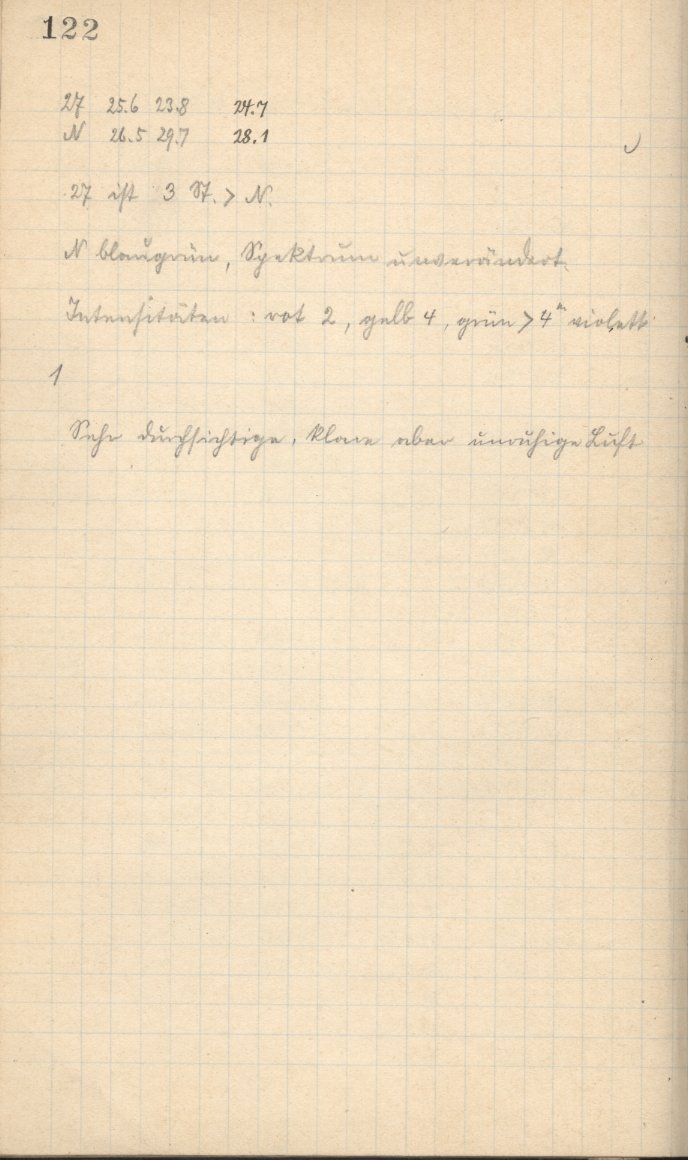 122
27 25.6 23.8 24.7
N 26.5 29.7 28.1
27 ist 3 St. > N.
N blaugrün, Spektrum unverändert.
Intensitäten : rot 2, gelb 4, grün > 4 violett
1
Sehr durchsichtige, klare aber unruhige Luft